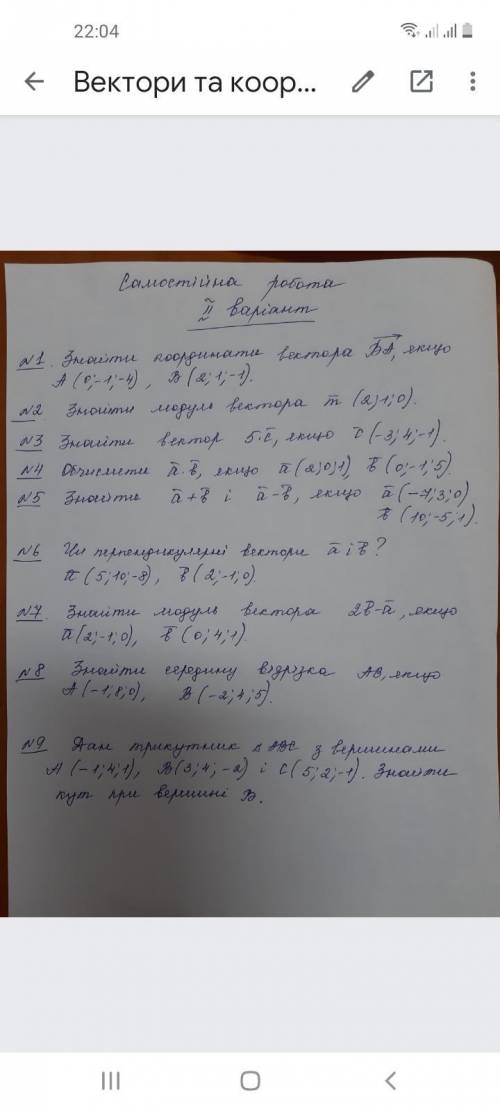 22:04
Вектори та коор...
Самостійна робота
II варіант
№1. Знайти координати вектора BA, якщо
A (0;-1;-4), B (2;1;-1).
№2 Знайти модуль вектора m (2;1;0).
№3 Знайти вектор 5·c, якщо c (-3;4;-1).
№4 Обчислити a·b, якщо a (2;0;1), b (0;-1;5).
№5 Знайти a+b і a-b, якщо a (-7;3;0)
b (10;-5;1).
№6 Чи перпендикулярні вектори a і b?
a (5;10;-8), b (2;-1;0).
№7. Знайти модуль вектора 2b-a, якщо
a (2;-1;0), b (0;4;1).
№8 Знайти середину відрізка AB, якщо
A (-1;8;0), B (-2;4;5).
№9 Дан трикутник ΔABC з вершинами
A (-1;4;1), B (3;4;-2) і C (5;2;-1). Знайти
кут при вершині B.